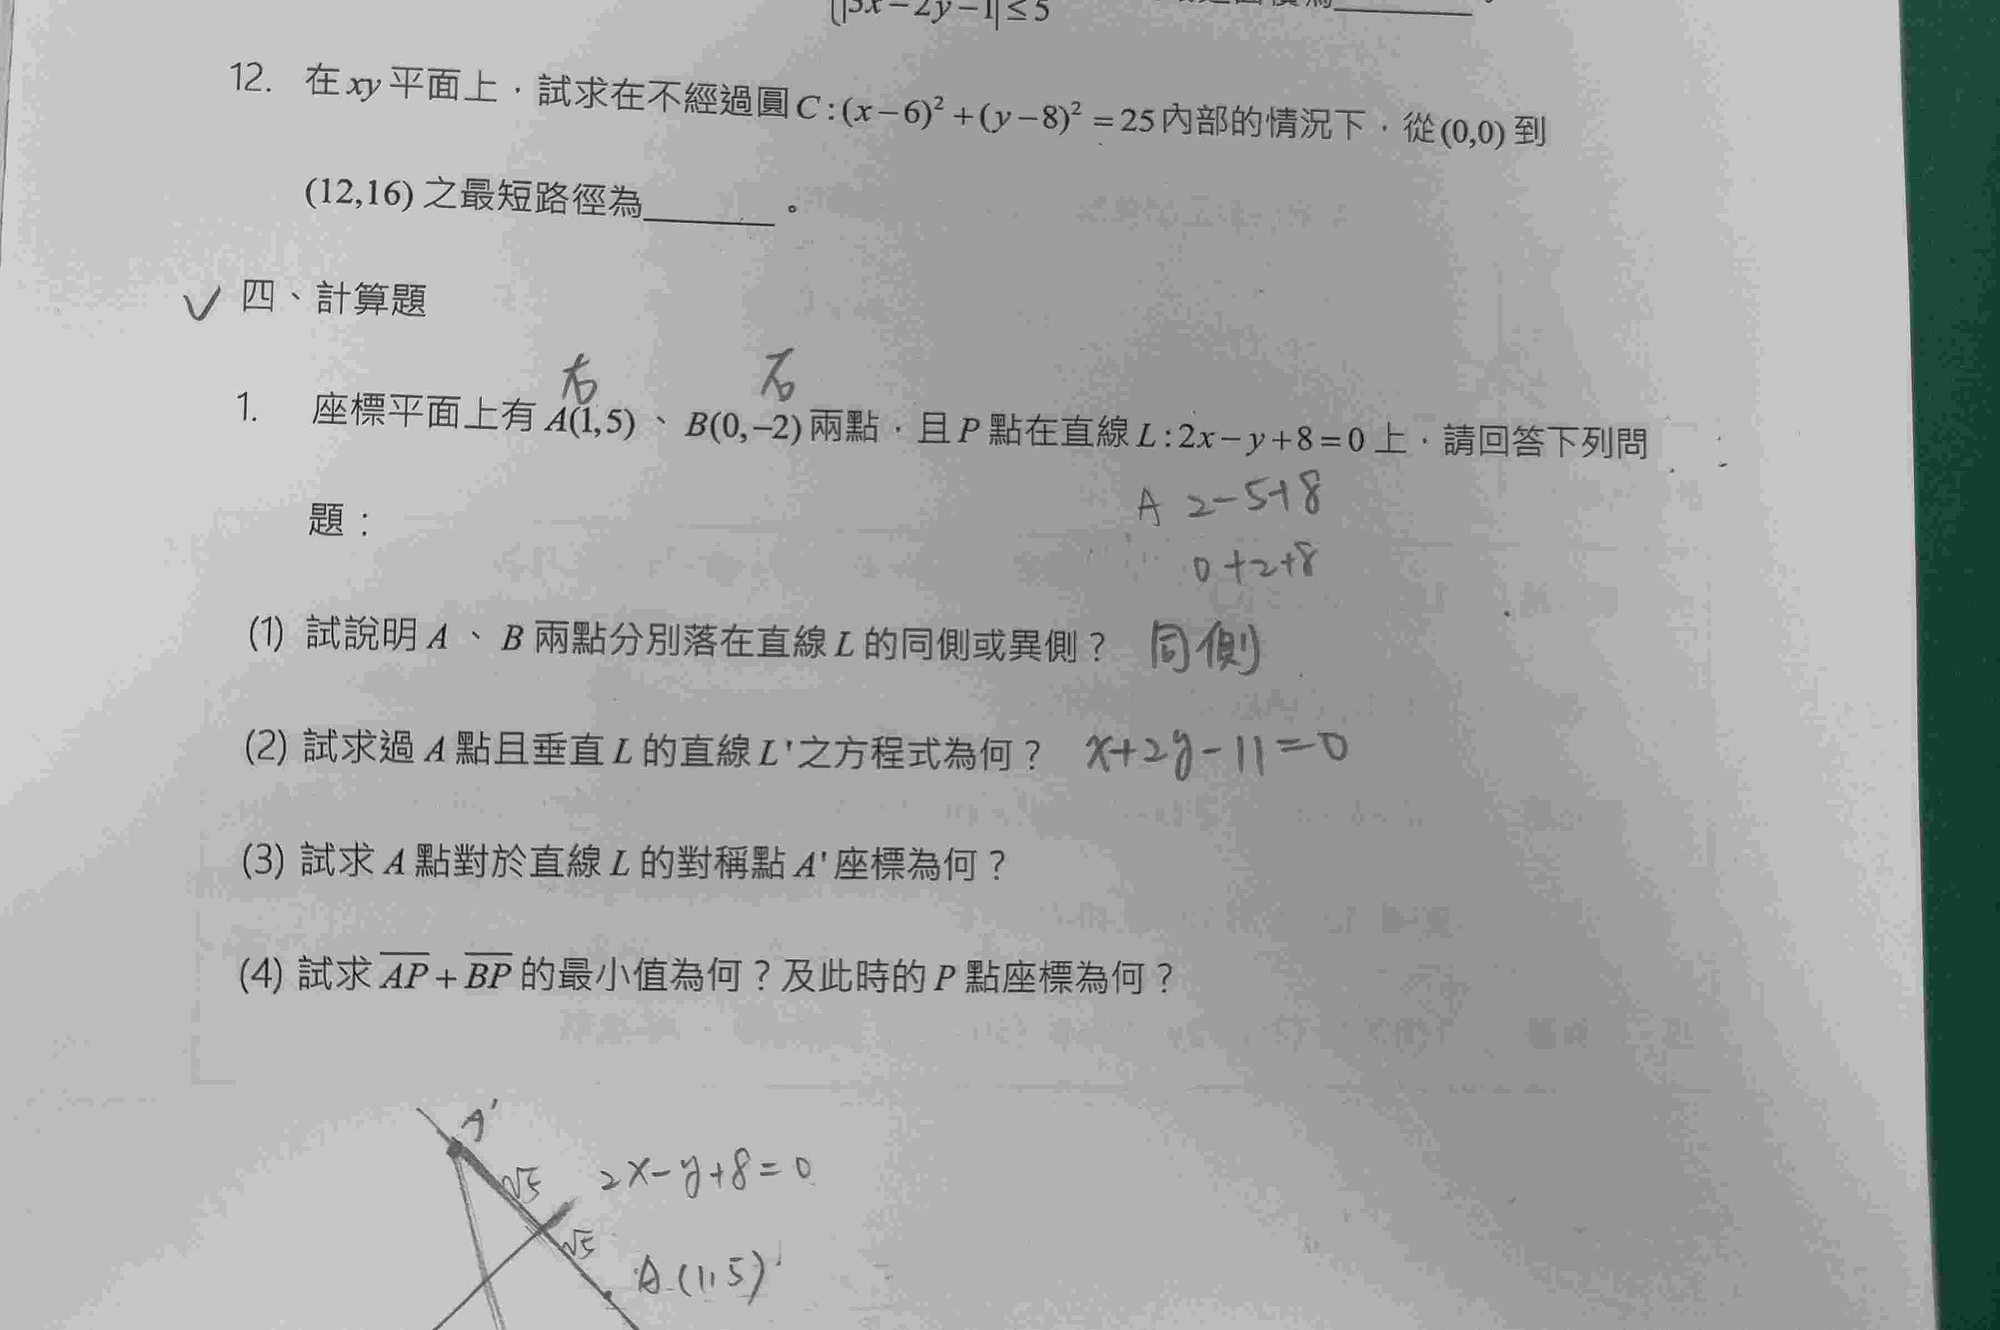 |3x-2y-1|≤5
12. 在xy平面上,試求在不經過圓C:(x-6)²+(y-8)²=25內部的情況下,從(0,0)到
(12,16)之最短路徑為______。
✓ 四、計算題
右 右
1. 座標平面上有A(1,5)、B(0,-2)兩點,且P點在直線L:2x-y+8=0上,請回答下列問
題:
A 2-5+8
0+2+8
(1) 試說明A、B兩點分別落在直線L的同側或異側? 同側
(2) 試求過A點且垂直L的直線L'之方程式為何? x+2y-11=0
(3) 試求A點對於直線L的對稱點A'座標為何?
(4) 試求A̅P̅+B̅P̅的最小值為何?及此時的P點座標為何?
A'
√5 2x-y+8=0
√5
A(1,5)